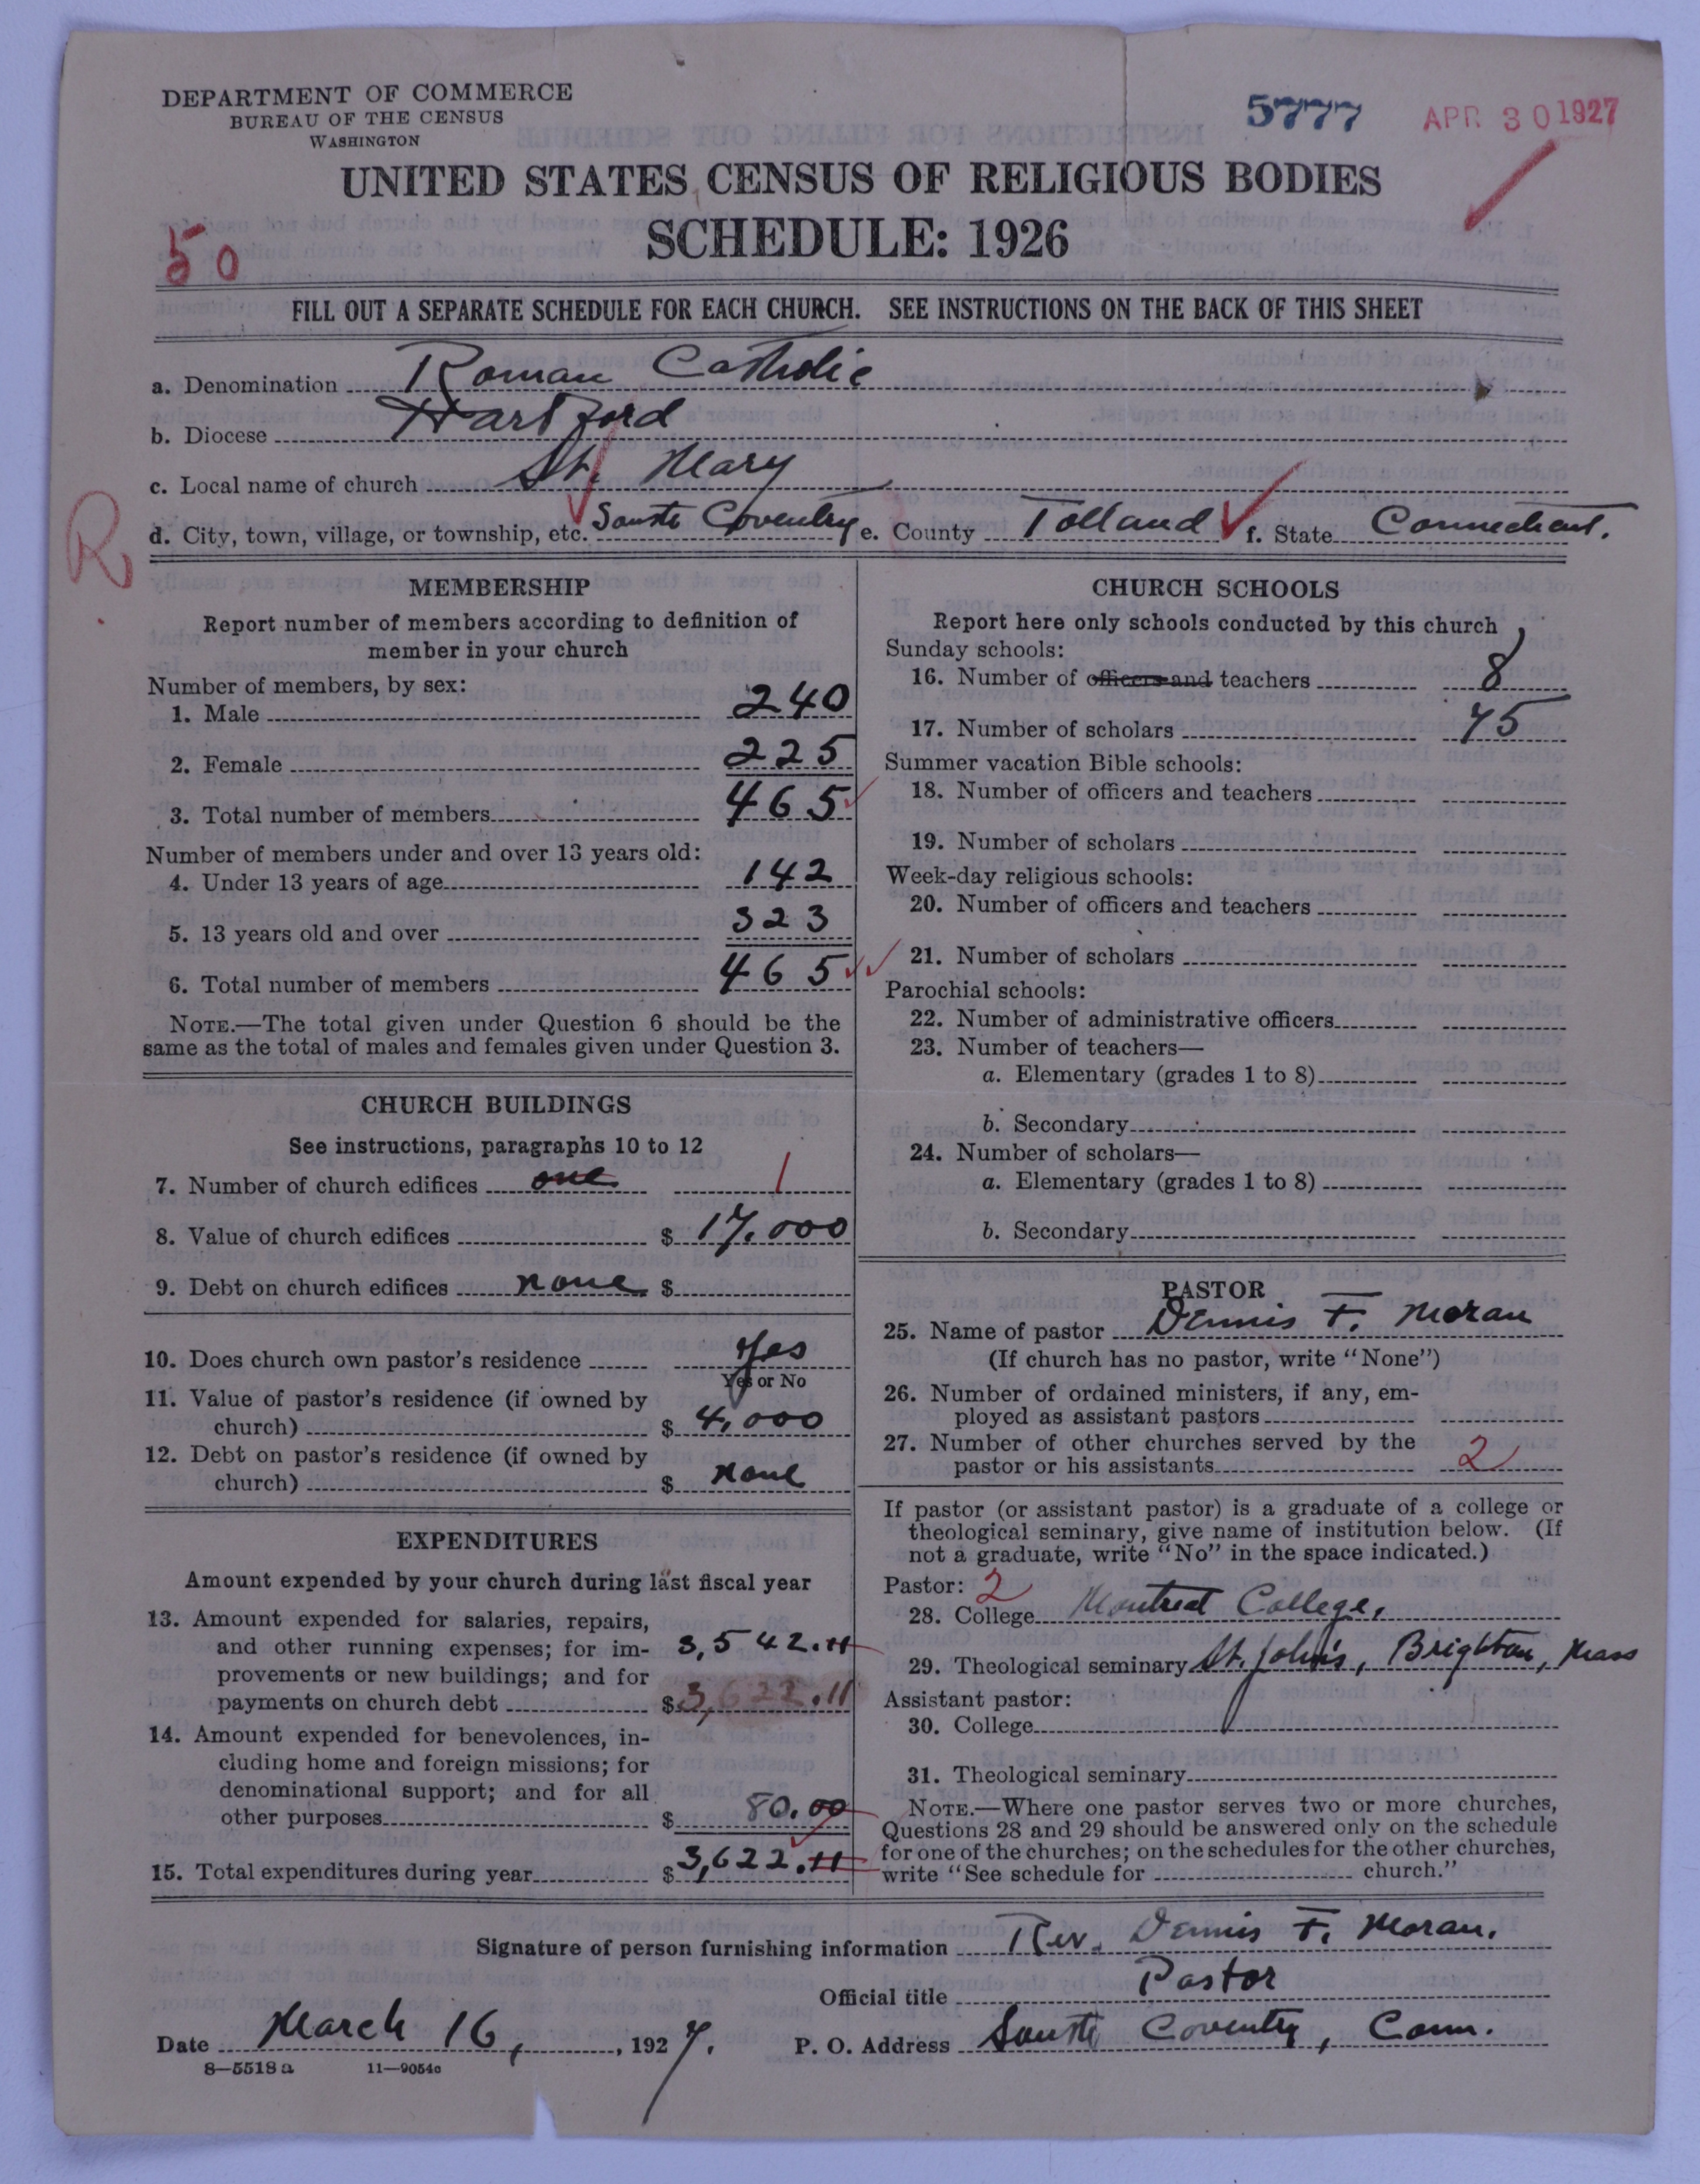 DEPARTMENT OF COMMERCE
BUREAU OF THE CENSUS
WASHINGTON
5777 APR 30 1927
UNITED STATES CENSUS OF RELIGIOUS BODIES
SCHEDULE: 1926
50
FILL OUT A SEPARATE SCHEDULE FOR EACH CHURCH. SEE INSTRUCTIONS ON THE BACK OF THIS SHEET
a. Denomination Roman Catholic
b. Diocese Hartford
c. Local name of church St. Mary
R
d. City, town, village, or township, etc. South Coventry e. County Tolland f. State Connecticut.
MEMBERSHIP
Report number of members according to definition of
member in your church
Number of members, by sex:
1. Male 240
2. Female 225
3. Total number of members 465
Number of members under and over 13 years old:
4. Under 13 years of age 142
5. 13 years old and over 323
6. Total number of members 465
NOTE.—The total given under Question 6 should be the
same as the total of males and females given under Question 3.
CHURCH BUILDINGS
See instructions, paragraphs 10 to 12
7. Number of church edifices one 1
8. Value of church edifices $ 17,000
9. Debt on church edifices none $
10. Does church own pastor's residence Yes
Yes or No
11. Value of pastor's residence (if owned by
church) $ 4,000
12. Debt on pastor's residence (if owned by
church) $ none
EXPENDITURES
Amount expended by your church during last fiscal year
13. Amount expended for salaries, repairs,
and other running expenses; for im- 3,542.11
provements or new buildings; and for
payments on church debt $ 3,622.11
14. Amount expended for benevolences, in-
cluding home and foreign missions; for
denominational support; and for all
other purposes $ 80.00
15. Total expenditures during year $ 3,622.11
CHURCH SCHOOLS
Report here only schools conducted by this church
Sunday schools:
16. Number of officers and teachers 8
17. Number of scholars 75
Summer vacation Bible schools:
18. Number of officers and teachers
19. Number of scholars
Week-day religious schools:
20. Number of officers and teachers
21. Number of scholars
Parochial schools:
22. Number of administrative officers
23. Number of teachers—
a. Elementary (grades 1 to 8)
b. Secondary
24. Number of scholars—
a. Elementary (grades 1 to 8)
b. Secondary
PASTOR
25. Name of pastor Dennis F. Moran
(If church has no pastor, write "None")
26. Number of ordained ministers, if any, em-
ployed as assistant pastors
27. Number of other churches served by the
pastor or his assistants 2
If pastor (or assistant pastor) is a graduate of a college or
theological seminary, give name of institution below. (If
not a graduate, write "No" in the space indicated.)
Pastor: 2
28. College Montreal College,
29. Theological seminary St. John's, Brighton, Mass
Assistant pastor:
30. College
31. Theological seminary
NOTE.—Where one pastor serves two or more churches,
Questions 28 and 29 should be answered only on the schedule
for one of the churches; on the schedules for the other churches,
write "See schedule for church."
Signature of person furnishing information Rev. Dennis F. Moran.
Official title Pastor
Date March 16, , 1927. P. O. Address South Coventry, Conn.
8—5518 a 11—9054c